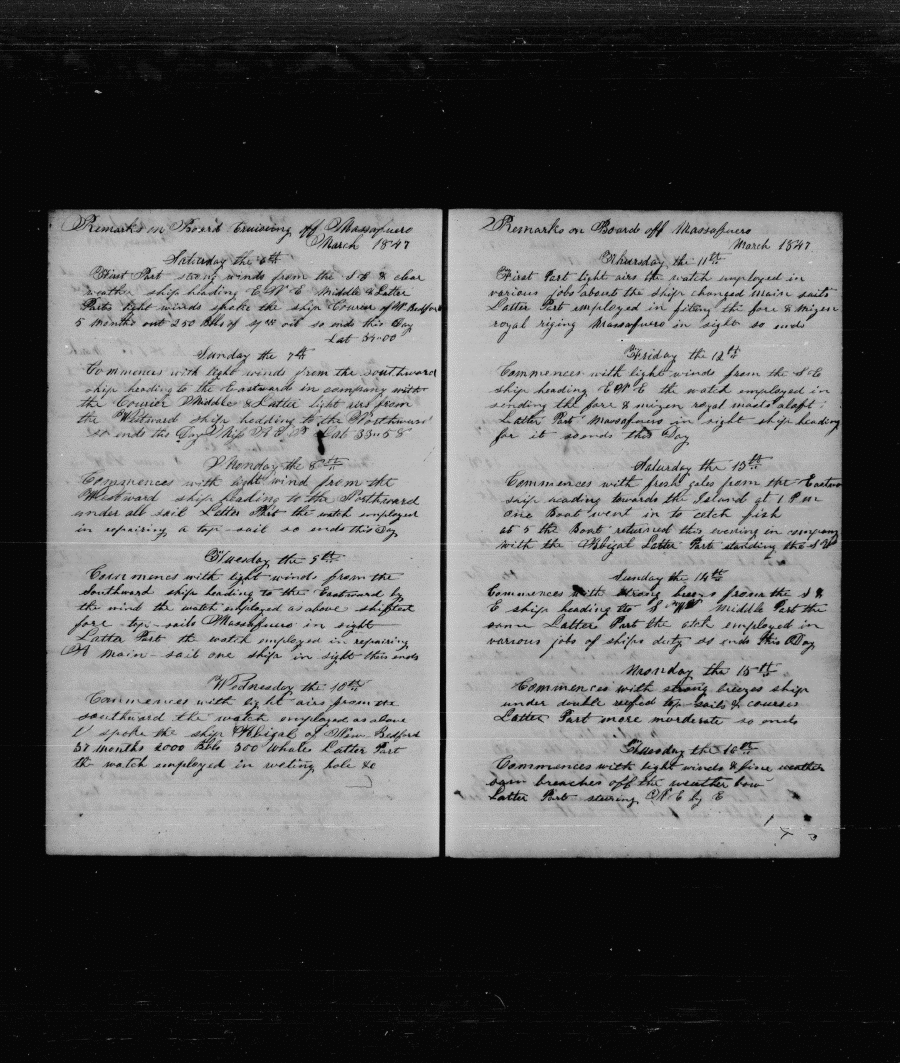 Remarks on Board Cruising off Massafuero
March 1847
Saturday the 6th
First Part strong winds from the S E & clear
weather ship heading E N E Middle & Latter
Parts light winds spoke the ship Courier of N. Bedford
5 months out 250 Bbls of oil so ends this Day
Lat 34-00
Sunday the 7th
Commences with light winds from the Southward
ship heading to the Eastward in company with
the Courier Middle & Latter light airs from
the Westward ship hedding to the Northward
so ends the Day Lat 33-58
Monday the 8th
Commences with light wind from the
Westward ship heading to the Northward
under all sail Latter Part the watch employed
in repairing a top-sail so ends this Day
Tuesday the 9th
Commences with light winds from the
Southward ship heading to the Eastward by
the wind the watch employed as above shifted
fore-top-sails Massafuero in sight
Latta Part the watch employed in repairing
A main-sail one ship in sight this ends
Wednesday the 10th
Commences with light airs from the
southward the watch employed as above
spoke the ship Abigal of New Bedford
37 months 2000 Bbls 300 Whale Latter Part
the watch employed in weting hole &c
Remarks on Board off Massafuero
March 1847
Thursday the 11th
First Part light airs the watch employed in
various jobs about the ship changed main sails
Latter Part employed in fiting the fore & mizen
royal riging Massafuero in sight so ends
Friday the 12th
Commences with light winds from the S E
ship heading E N E the watch employed in
sending the fore & mizen royal masts aloft
Latter Part Massafuero in sight ship heading
for it so ends this Day
Saturday the 13th
Commences with fresh gales from the Eastward
ship heading towards the Island at 1 P m
one Boat went in to catch fish
at 5 the Boat returned this evening in company
with the Abigal Latter Part standing the S W
Sunday the 14th
Commences with strong breezes from the S &
E ship heading to S W Middle Part the
same Latter Part the watch employed in
various jobs of ships duty so ends this Day
Monday the 15th
Commences with strong breezes ship
under double reefed top-sails & courses
Latter Part more morderate so ends
Tuesday the 16th
Commences with light winds & fine weather
sarn breaches off the weather bow
Latter Part steering N E by E